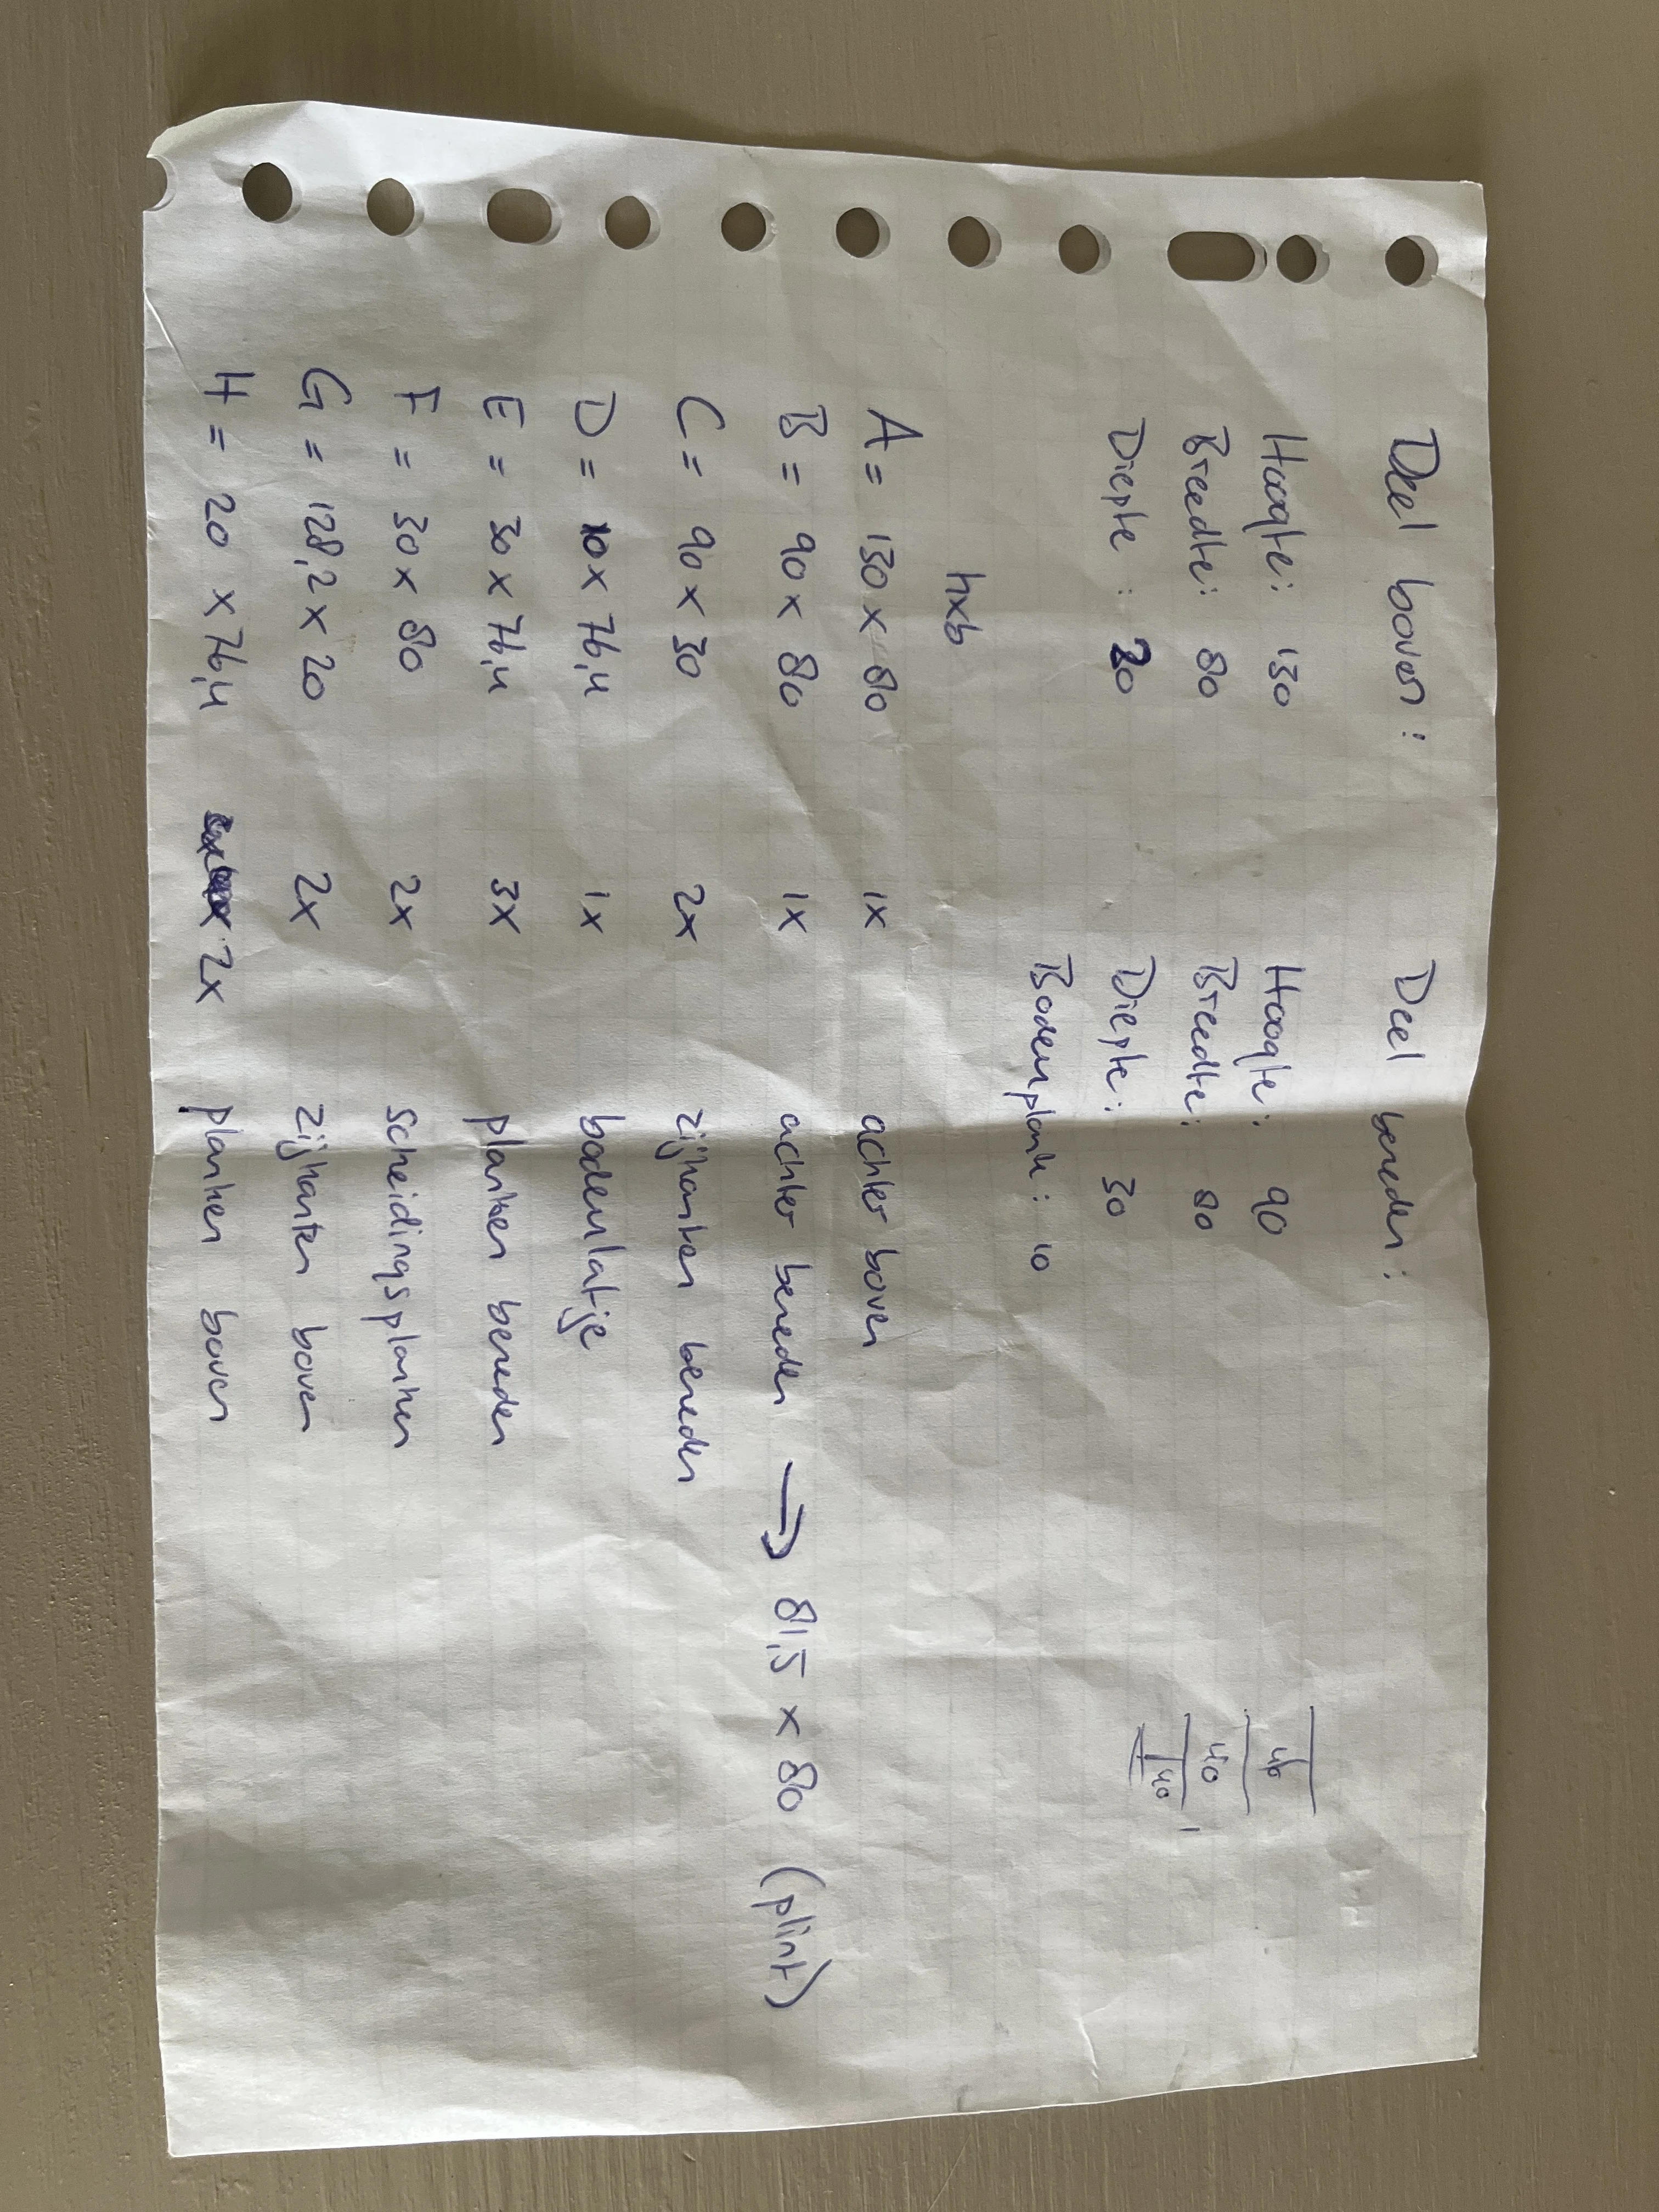 Deel boven: Deel beneden:
Hoogte: 130 Hoogte: 90
Breedte: 80 Breedte: 80
Diepte: 20 Diepte: 30
Bodemplank: 10
40
40
40
hxb
A = 130 x 80 1x achter boven
B = 90 x 80 1x achter beneden → 81,5 x 80 (plint)
C = 90 x 30 2x zijkanten beneden
D = 10 x 76,4 1x bodemlatje
E = 30 x 76,4 3x planken beneden
F = 30 x 80 2x scheidingsplanken
G = 128,2 x 20 2x zijkanten boven
H = 20 x 76,4 2x planken boven